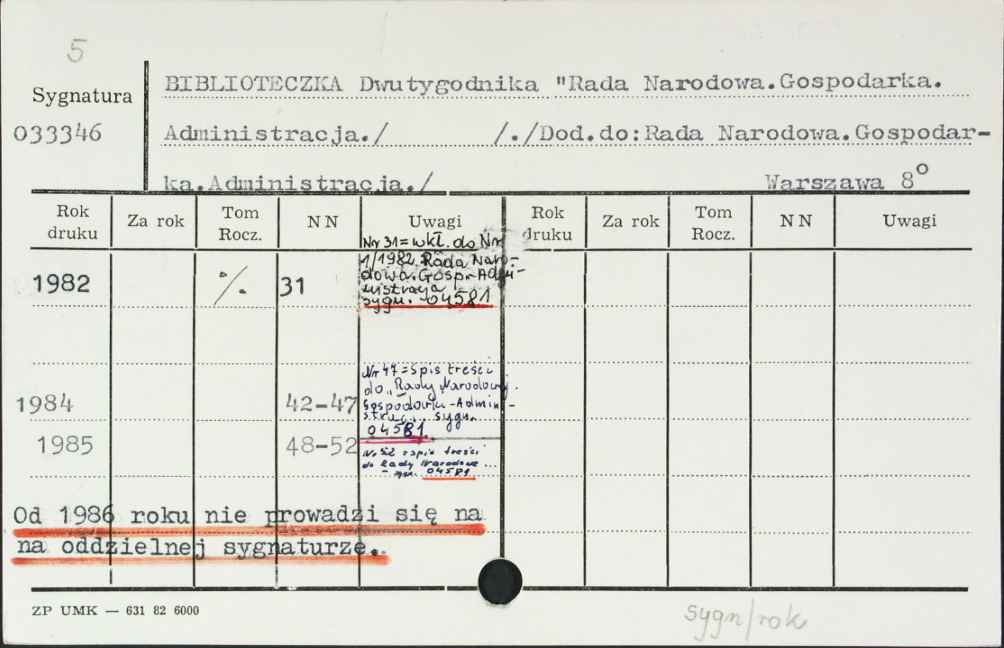 5
Sygnatura
033346
BIBLIOTECZKA Dwutygodnika "Rada Narodowa.Gospodarka.
Administracja./ /./Dod.do:Rada Narodowa.Gospodar-
ka.Administracja./ Warszawa 8°
Rok druku Za rok Tom Rocz. NN Uwagi Rok druku Za rok Tom Rocz. NN Uwagi
1982 %. 31
Nr 31=wkł. do Nr
1/1982 Rada Naro-
dowa.Gosp.Admi-
nistracja
sygn. 04581
1984 42-47
Nr 47=Spis treści
do "Rady Narodowej.
Gospodarki-Admin-
strac. sygn.
04581.
1985 48-52
Nr 52 =spis treści
do Rady Narodowe ...
- sygn. 04581
Od 1986 roku nie prowadzi się na
na oddzielnej sygnaturze.
ZP UMK — 631 82 6000
sygn/rok